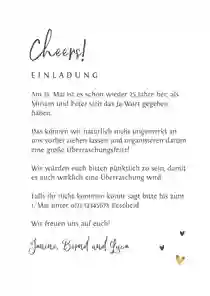 Cheers!
EINLADUNG
Am 15. Mai ist es schon wieder 25 Jahre her, als
Miriam und Peter sich das Ja-Wort gegeben
haben.
Das können wir natürlich nicht ungenutzt an
uns vorbei ziehen lassen und organisieren darum
eine große Überraschungsfeier!
Wir würden euch bitten pünktlich zu sein, damit
es auch wirklich eine Überraschung wird.
Falls ihr nicht kommen könnt sagt bitte bis zum
1. Mai unter 0171 12345678 Bescheid
Wir freuen uns auf euch!
Janine, Bernd und Lyca